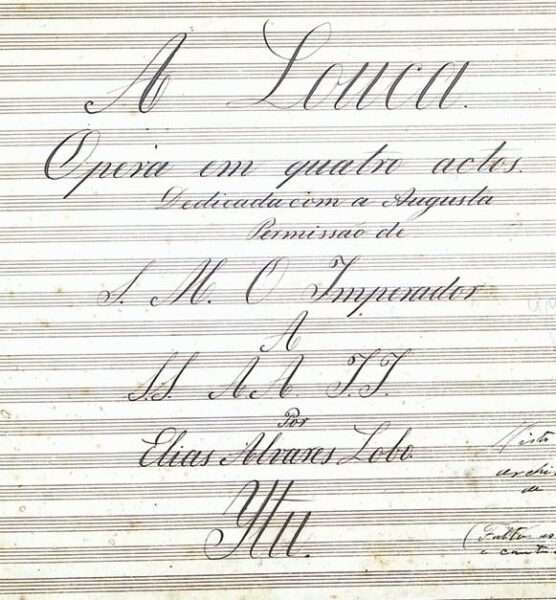 A Louca.
Opera em quatro actos.
Dedicada com a Augusta
Permissão de
S. M. O Imperador
A
SS. AA. I.I.
Por
Elias Alvares Lobo
Ytu.
de
(Falta